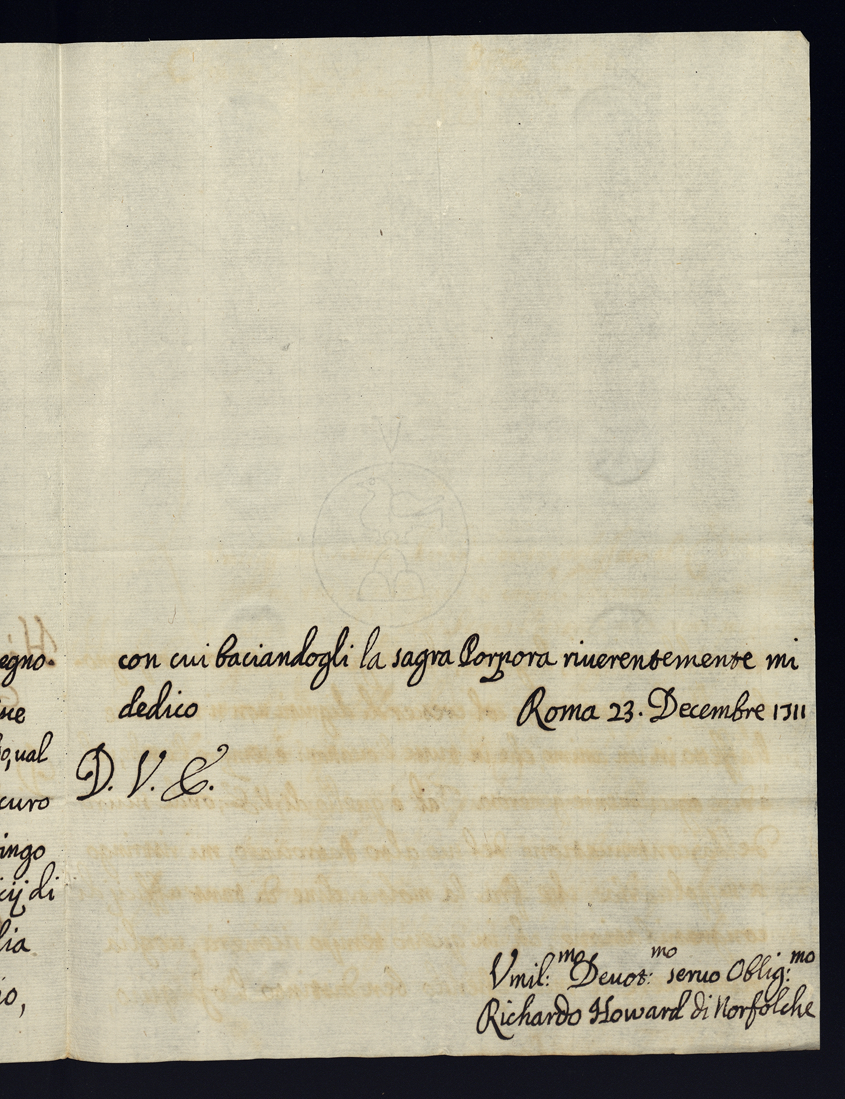 egno.
ue
o, ual
curo
ingo
icij di
lia
io,
con cui baciandogli la sagra Porpora riuerentemente mi
dedico Roma 23. Decembre 1711
D. V. E.
Vmil:mo Deuot:mo seruo Oblig:mo
Richardo Howard di Norfolche